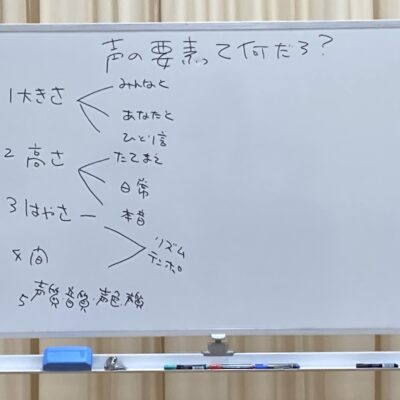 声の要素って何だろ？
1 大きさ
みんなと
あなたと
ひとり言
2 高さ
たてまえ
日常
本音
3 はやさ
リズム
テンポ
4 間
5 声質 音質・声色・